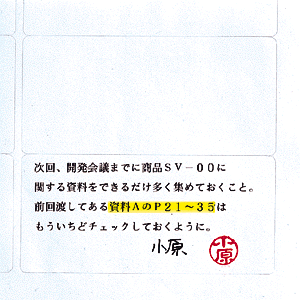 次回、開発会議までに商品ＳＶ－００に
関する資料をできるだけ多く集めておくこと。
前回渡してある資料ＡのＰ２１～３５は
もういちどチェックしておくように。
小原
小原